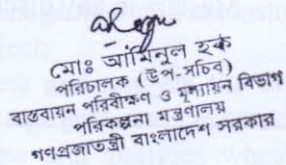 মোঃ আমিনুল হক
পরিচালক (উপ-সচিব)
বাস্তবায়ন পরিবীক্ষণ ও মূল্যায়ন বিভাগ
পরিকল্পনা মন্ত্রণালয়
গণপ্রজাতন্ত্রী বাংলাদেশ সরকার